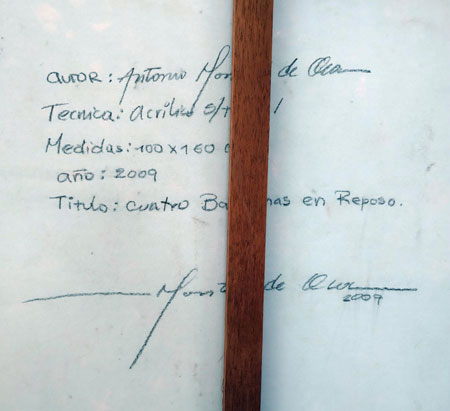 autor: Antonio de Oca
Tecnica: Acrilico s/
Medidas: 100 x 160
año: 2009
Titulo: cuatro Ba nas en Reposo.
de Oca
2009